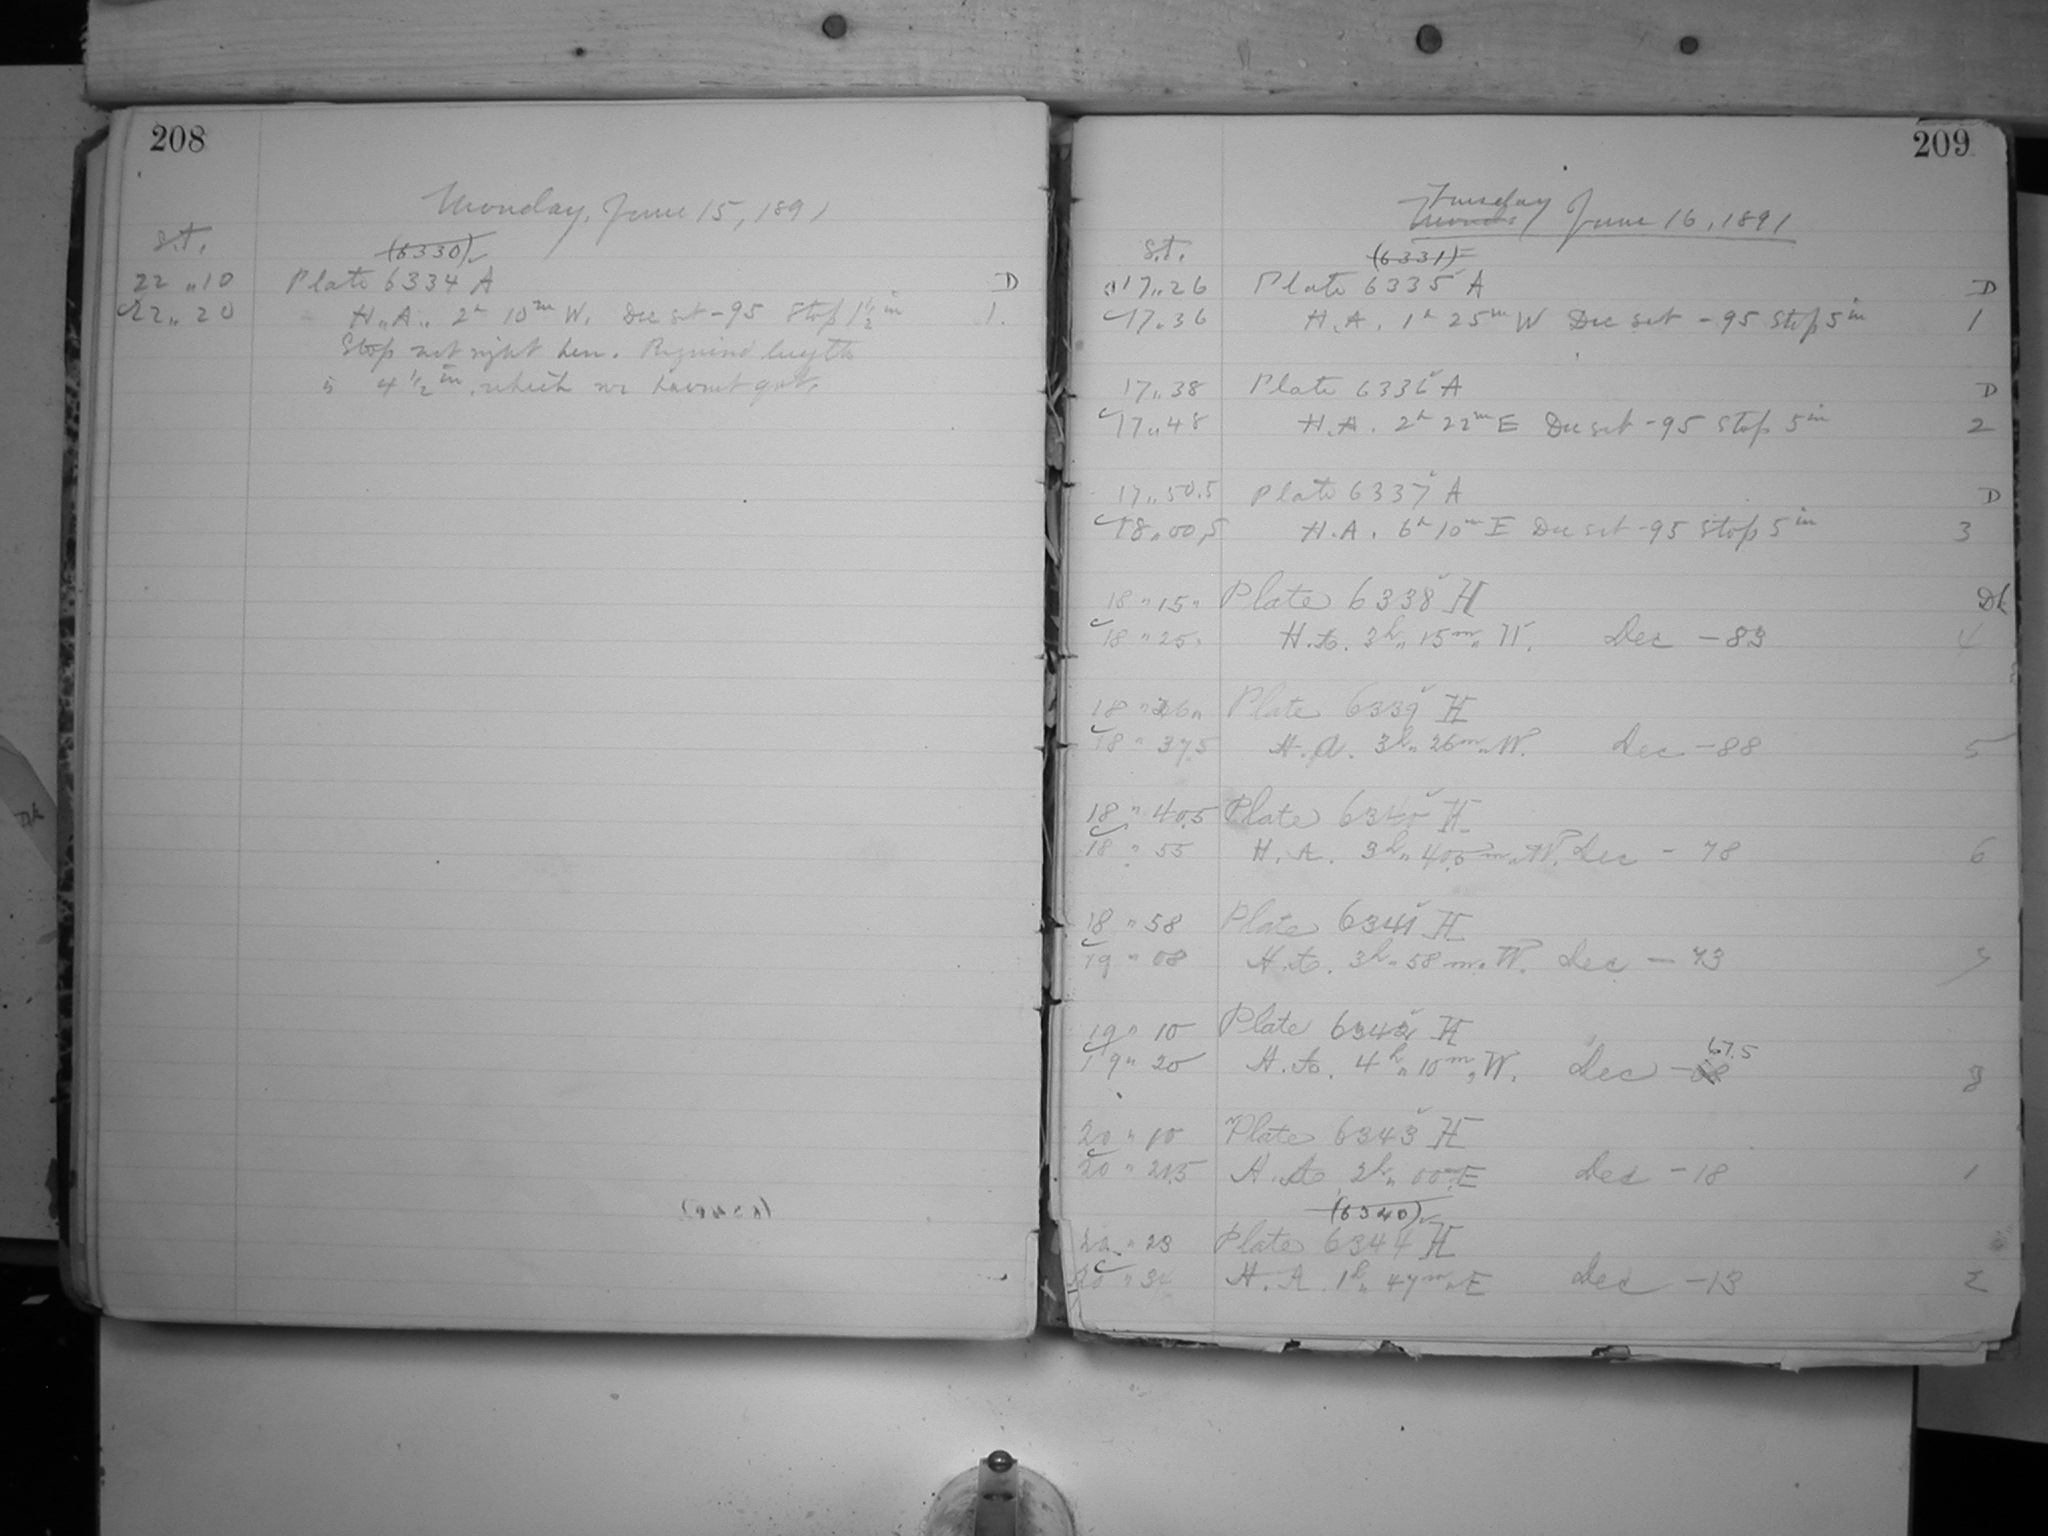 208
Monday, June 15, 1891
S.T.
(6330)
22 " 10 Plate 6334 A D
22 " 20 H. A. 2h 10m W. Dec set -95 Stop 1 1/2 in 1.
Stop not right here. Required length
is 4 1/2 in. which we havent got.
209
Tuesday June 16, 1891
S.T.
(6331)
17 " 26 Plate 6335 A D
17 " 36 H.A. 1h 25m W Dec set -95 Stop 5 in 1
17 " 38 Plate 6336 A D
17 " 48 H.A. 2h 22m E Dec set -95 Stop 5 in 2
17 " 50.5 Plate 6337 A D
18 " 00.5 H.A. 6h 10m E Dec set -95 Stop 5 in 3
18 " 15 " Plate 6338 H Dk
18 " 25 " H.A. 3h " 15m " W. Dec -83 4
18 " 26 " Plate 6339 H
18 " 37.5 H.A. 3h " 26m " W. Dec -88 5
18 " 40.5 Plate 6340 H
18 " 55 H.A. 3h " 40.5m " W. Dec - 78 6
18 " 58 Plate 6341 H
19 " 08 H.A. 3h " 58m " W. Dec - 73 7
19 " 10 Plate 6342 H
19 " 20 H.A. 4h " 10m " W. Dec - 67.5 8
20 " 10 Plate 6343 H
20 " 21.5 H.A. 2h " 00m E Dec -18 1
(6340)
20 " 23 Plate 6344 H
20 " 34 H.A. 1h " 47m " E Dec -13 2